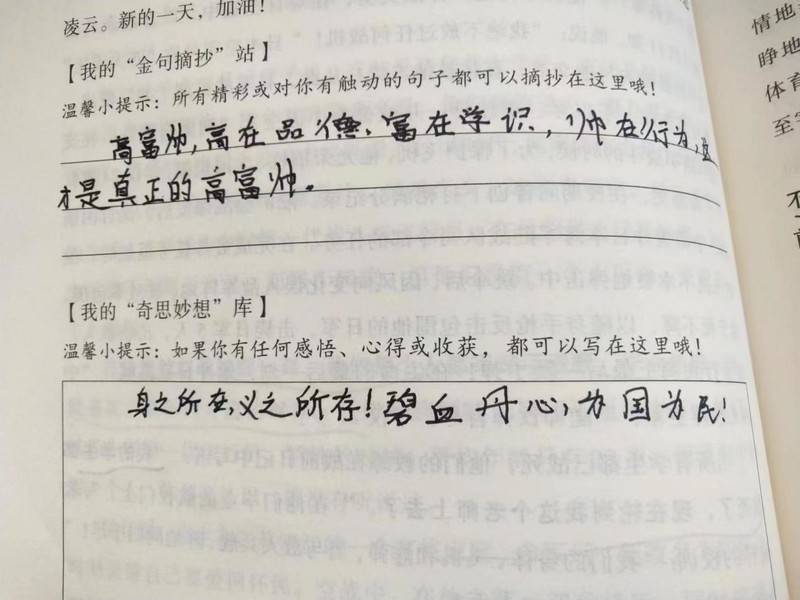 凌云。新的一天，加油！
【我的“金句摘抄”站】
温馨小提示：所有精彩或对你有触动的句子都可以摘抄在这里哦！
高富帅，高在品德、富在学识，帅在行为，这
才是真正的高富帅。
【我的“奇思妙想”库】
温馨小提示：如果你有任何感悟、心得或收获，都可以写在这里哦！
身之所在，义之所存！碧血丹心，为国为民！
情地
睁地
体育
至